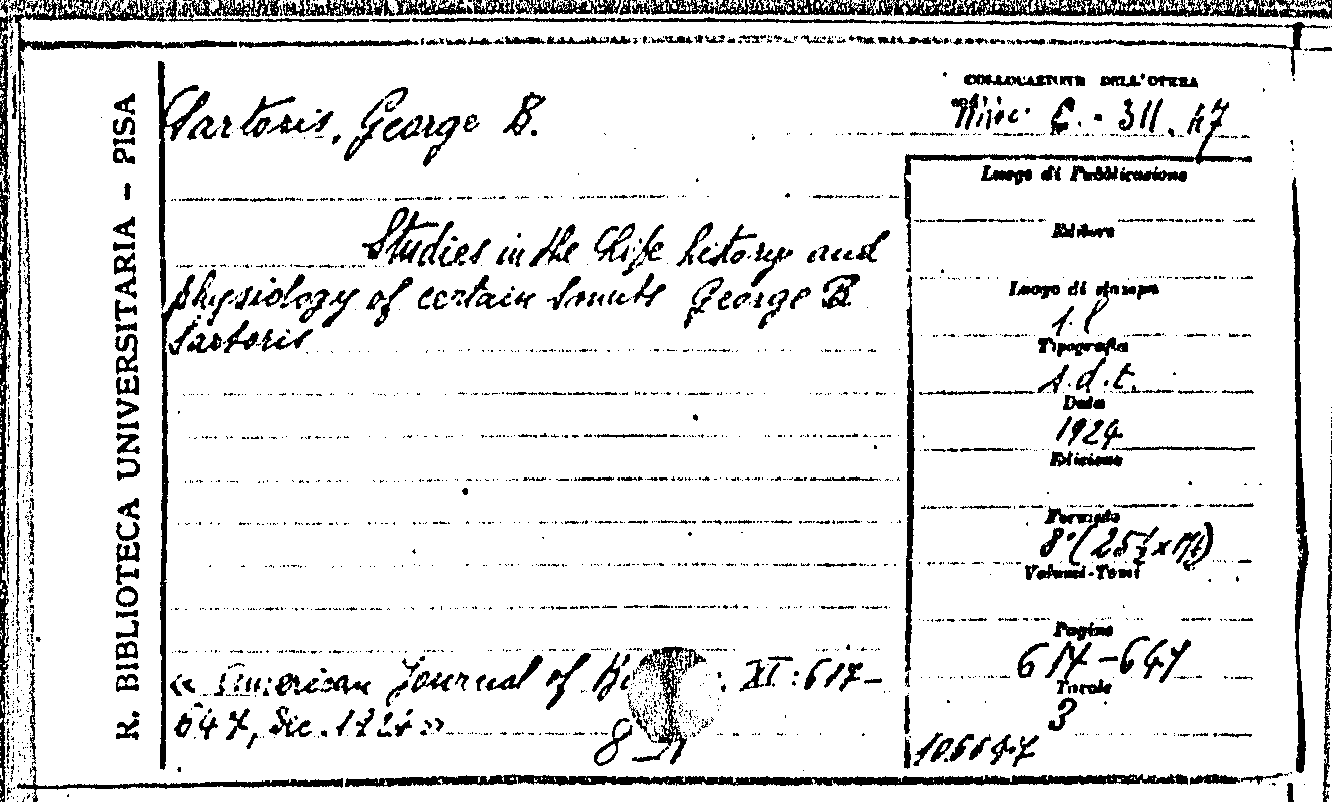 R. BIBLIOTECA UNIVERSITARIA – PISA
Sartoris, George B.
COLLOCAZIONE DELL'OPERA
Misc. C. - 311. 47
Studies in the Life history and
physiology of certain smuts George B.
Sartoris
Luogo di Pubblicazione
Editore
Luogo di stampa
s.l
Tipografia
s.d.t.
Data
1924
Edizione
Formato
8°(25½x17½)
Volumi-Tomi
Pagine
617-647
Tavole
3
« American Journal of XI:617-
647, Dic. 1924 »